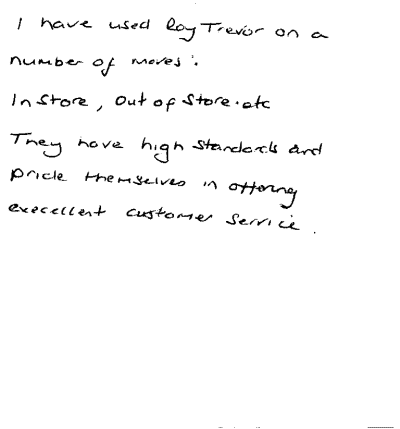 I have used Roy Trevor on a
number of moves:
In Store, Out of Store. etc
They have high standards and
pride themselves in offering
execellent customer service.